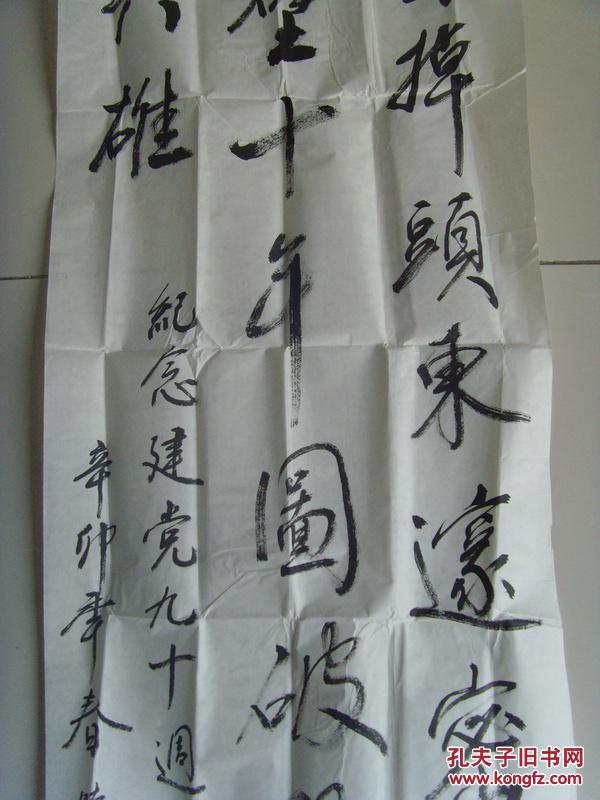 掉頭東邃密
壁十年圖破
雄
紀念建党九十週
辛卯年春
孔夫子旧书网
www.kongfz.com